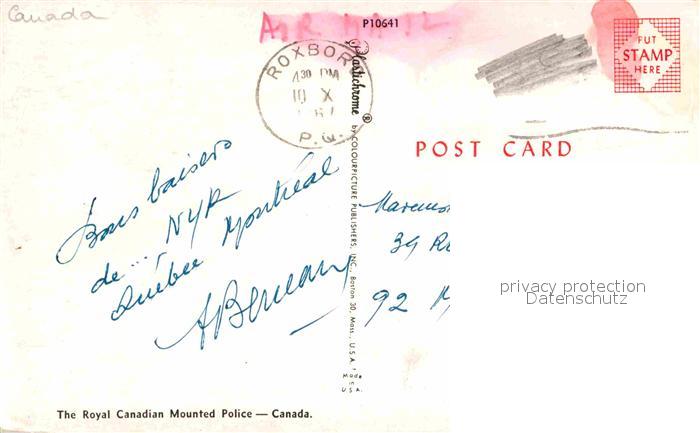 Canada
AIR MAIL
P10641
PUT
STAMP
HERE
ROXBORO
4 30 PM
10 X
67
P.Q.
Plastichrome ®
by COLOURPICTURE PUBLISHERS, INC., Boston 30, Mass., U.S.A.
Made in U.S.A.
POST CARD
Bons baisers
de... NYK
Québec Montréal
39
92
privacy protection
Datenschutz
The Royal Canadian Mounted Police — Canada.